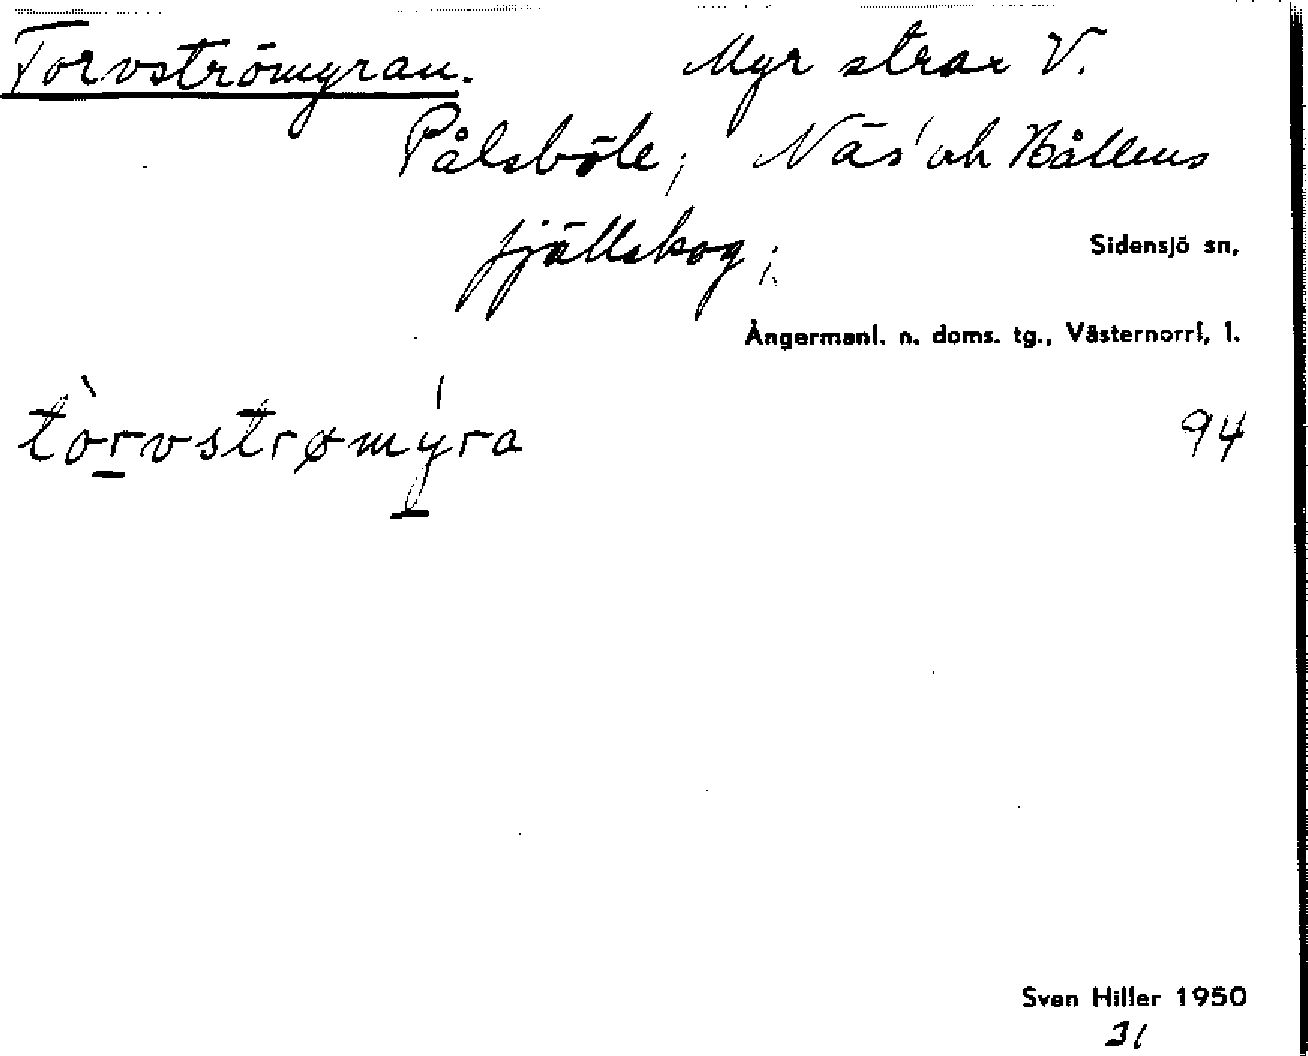 Torvströmyran. Myr strax V.
Pålsböle; Näs' och Hållens
fjällskog;
Sidensjö sn,
Ångermanl. n. doms. tg., Västernorrl, l.
tòrvstrømýra 94
Sven Hiller 1950
31